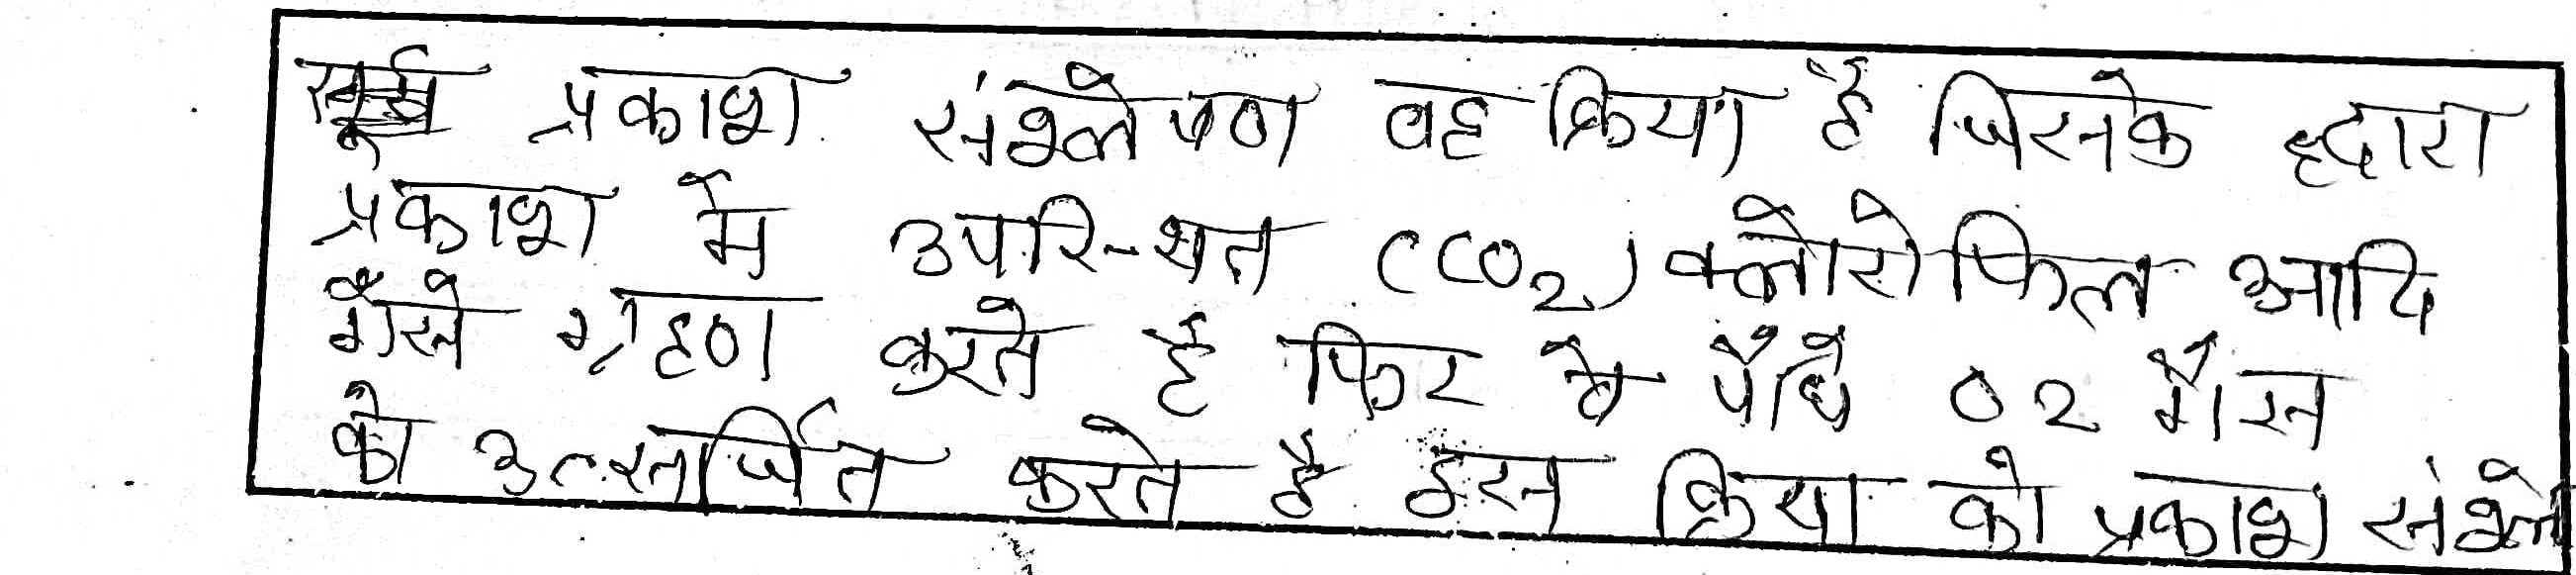 प्रकाश संश्लेषण वह क्रिया है जिसके द्वारा
प्रकाश में उपस्थित (CO2) क्लोरोफिल आदि
गैसे ग्रहण करते है फिर वे पौधे O2 गैस
को उत्सर्जित करते है इस क्रिया को प्रकाश संश्ले